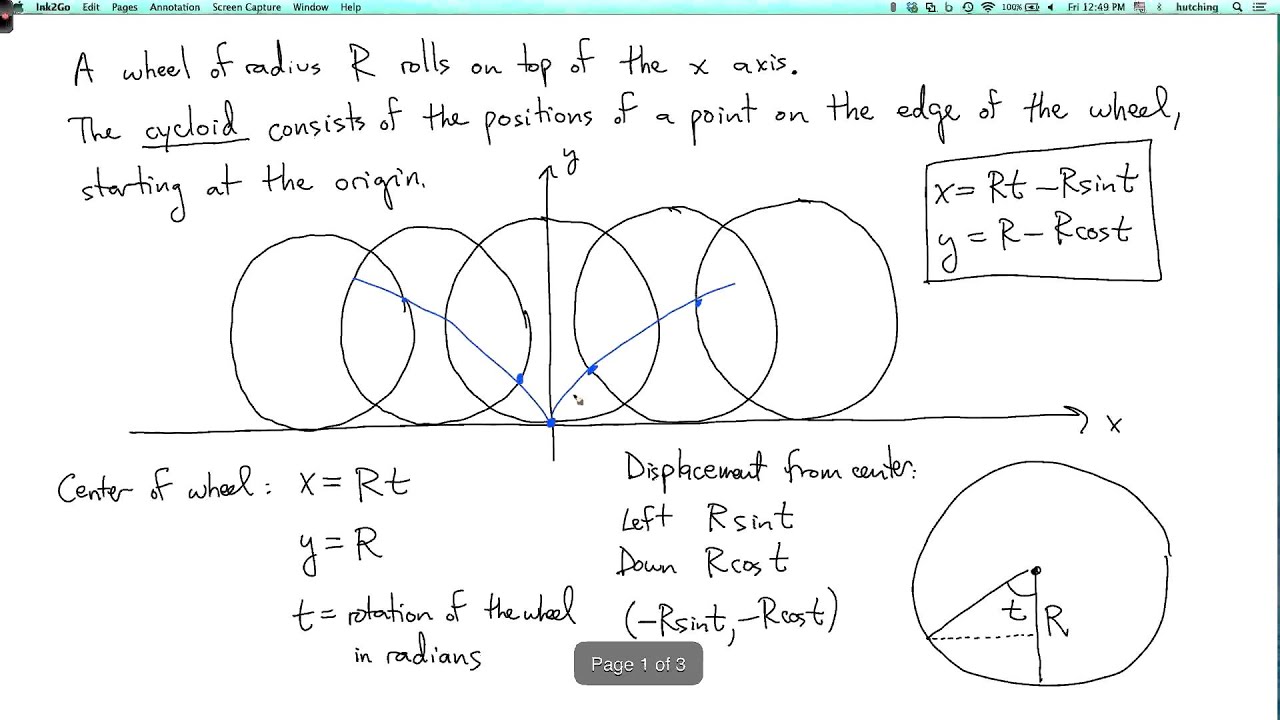 Ink2Go Edit Pages Annotation Screen Capture Window Help 100% Fri 12:49 PM hutching
A wheel of radius R rolls on top of the x axis.
The cycloid consists of the positions of a point on the edge of the wheel,
starting at the origin.
y
x = Rt - R sin t
y = R - R cos t
x
Center of wheel: x = Rt
y = R
t = rotation of the wheel
in radians
Displacement from center:
Left R sin t
Down R cos t
(-R sin t, -R cos t)
t
R
Page 1 of 3